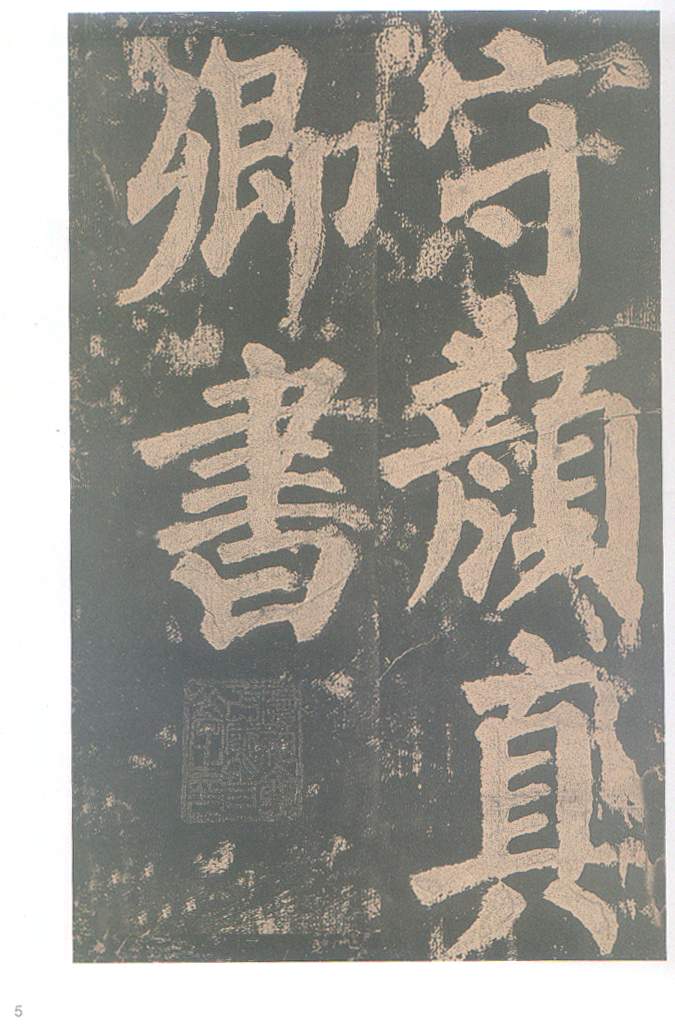 守顔真
卿書
5